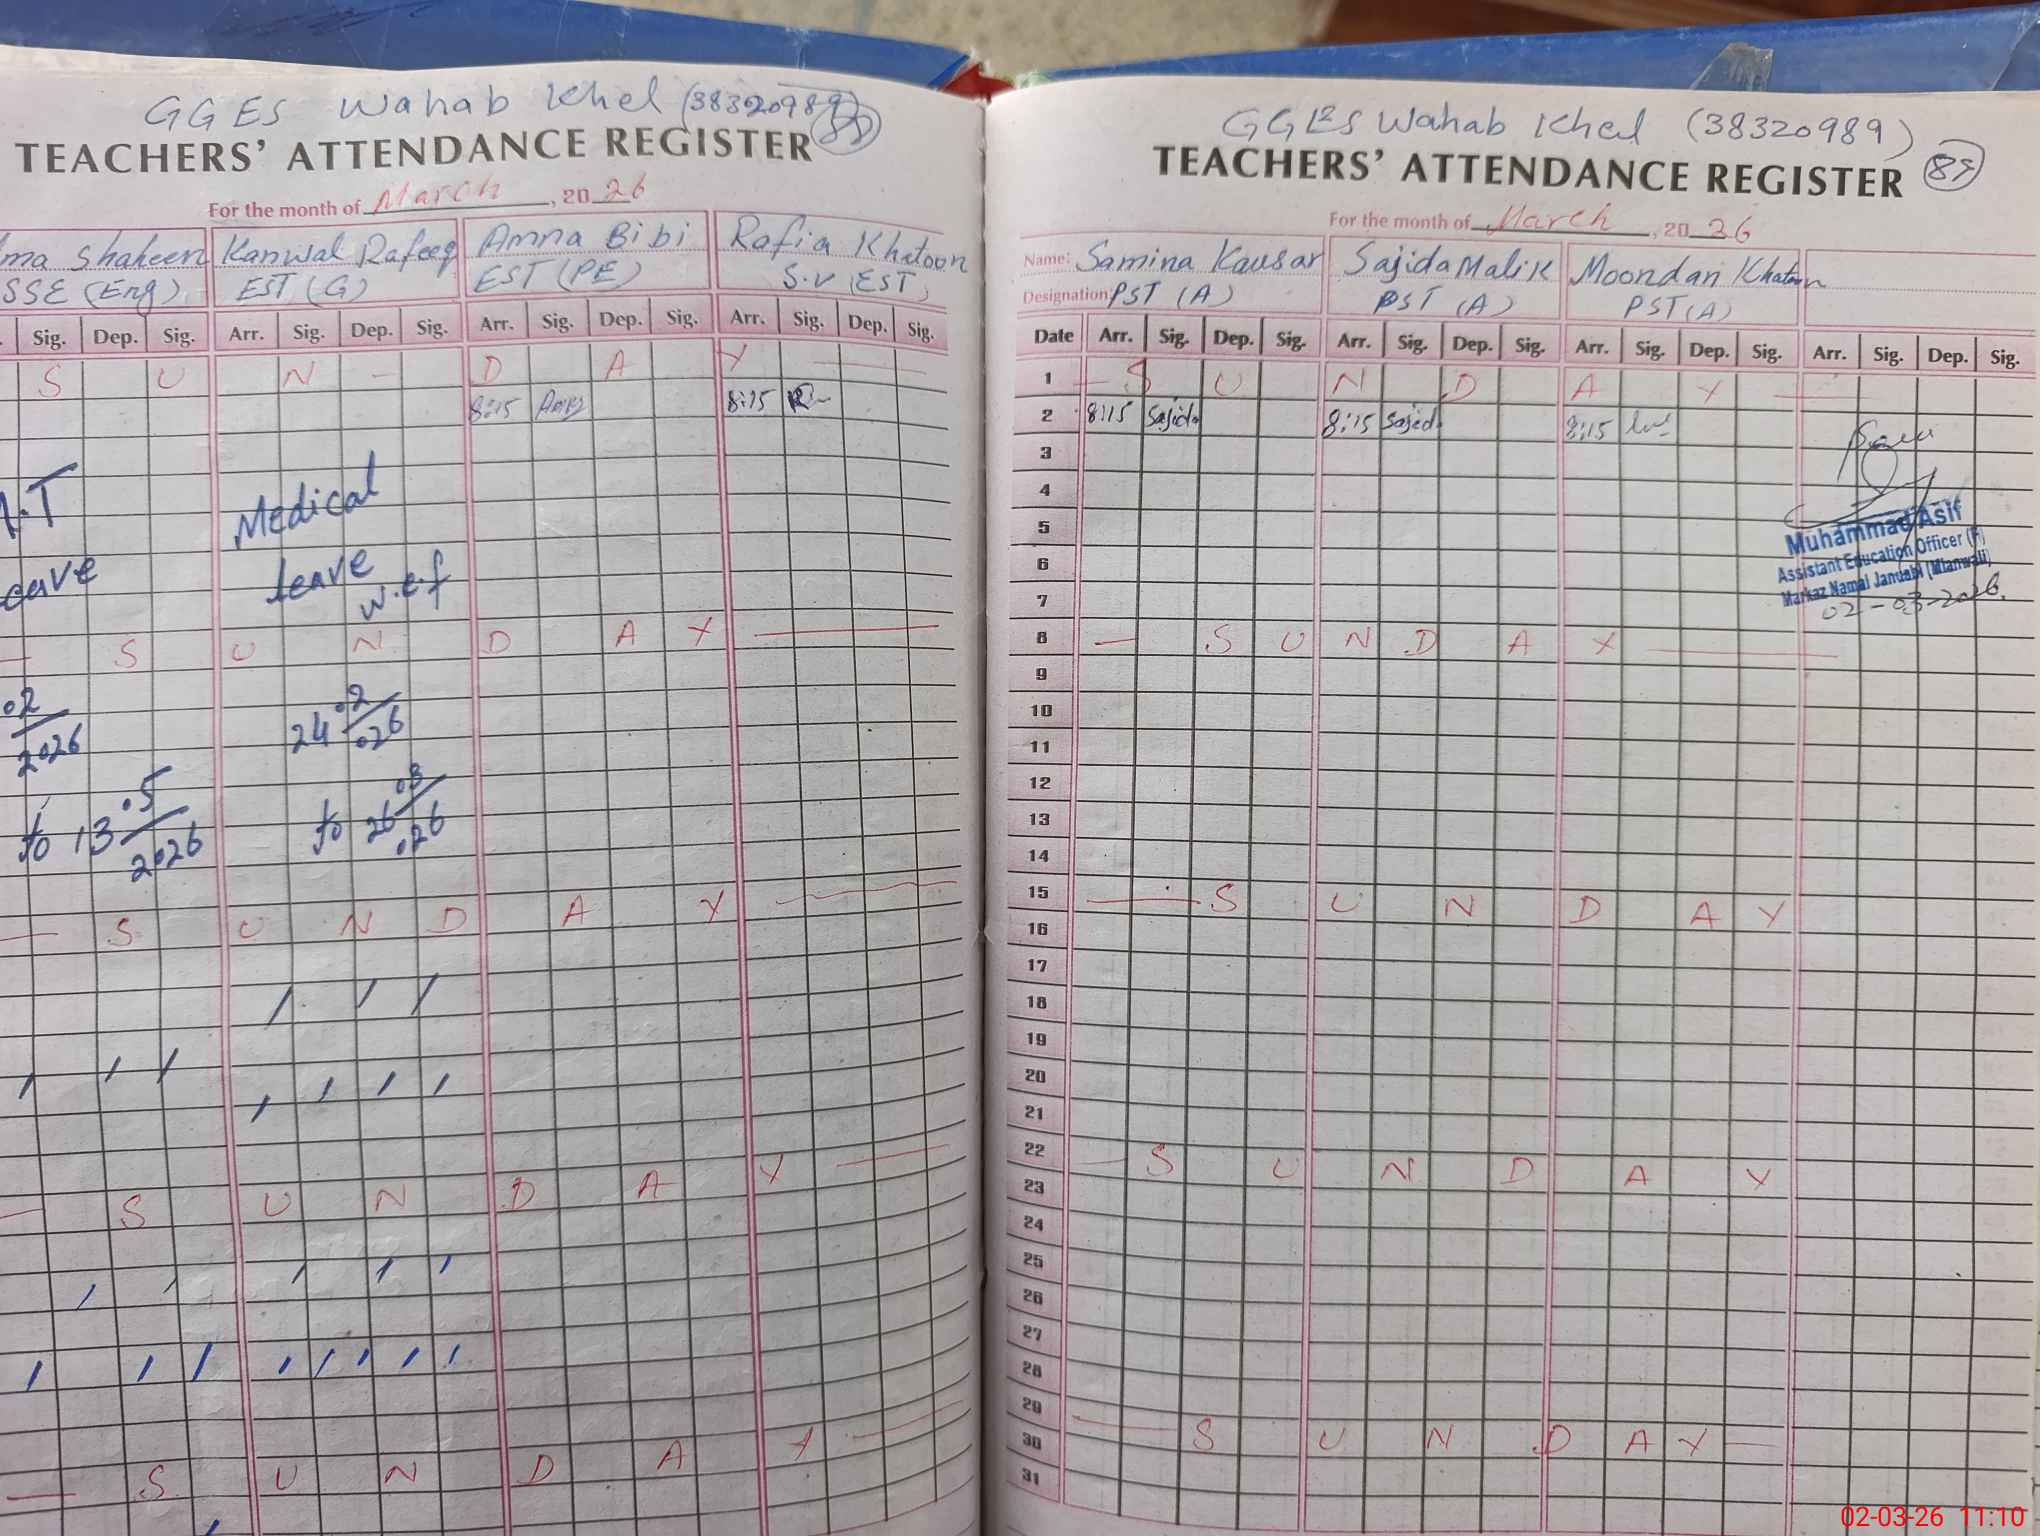 GGES Wahab Khel (38320989)
88
TEACHERS' ATTENDANCE REGISTER
For the month of March, 2026
ma Shaheen Kanwal Rafeeq Amna Bibi Rafia Khatoon
SSE (Eng) EST (G) EST (PE) S.V (EST)
Sig. Dep. Sig. Arr. Sig. Dep. Sig. Arr. Sig. Dep. Sig. Arr. Sig. Dep. Sig.
S U N - D A Y
8:15 8:15
Medical
leave
w.e.f
S U N D A Y
.02
2026
24 .02
.026
to 13 .5
2026
to 26 .03
.026
S U N D A Y
S U N D A Y
S U N D A Y
GGES Wahab Khel (38320989)
TEACHERS' ATTENDANCE REGISTER
For the month of March, 2026
Name: Samina Kausar Sajida Malik Moondan Khatoon
Designation: PST (A) PST (A) PST (A)
Date Arr. Sig. Dep. Sig. Arr. Sig. Dep. Sig. Arr. Sig. Dep. Sig. Arr. Sig. Dep. Sig.
1 S U N D A Y
2 8:15 Sajida 8:15 Sajid 8:15
3
4
5
6
7
Muhammad Asif
Assistant Education Officer (F)
Markaz Namal Janubi (Mianwali)
02-03-2026.
8 S U N D A Y
9
10
11
12
13
14
15 S U N D A Y
16
17
18
19
20
21
22 S U N D A Y
23
24
25
26
27
28
29 S U N D A Y
30
31
02-03-26 11:10